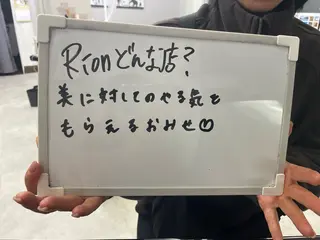 Rionどんな店?
美に対してのやる気を
もらえるおみせ☺